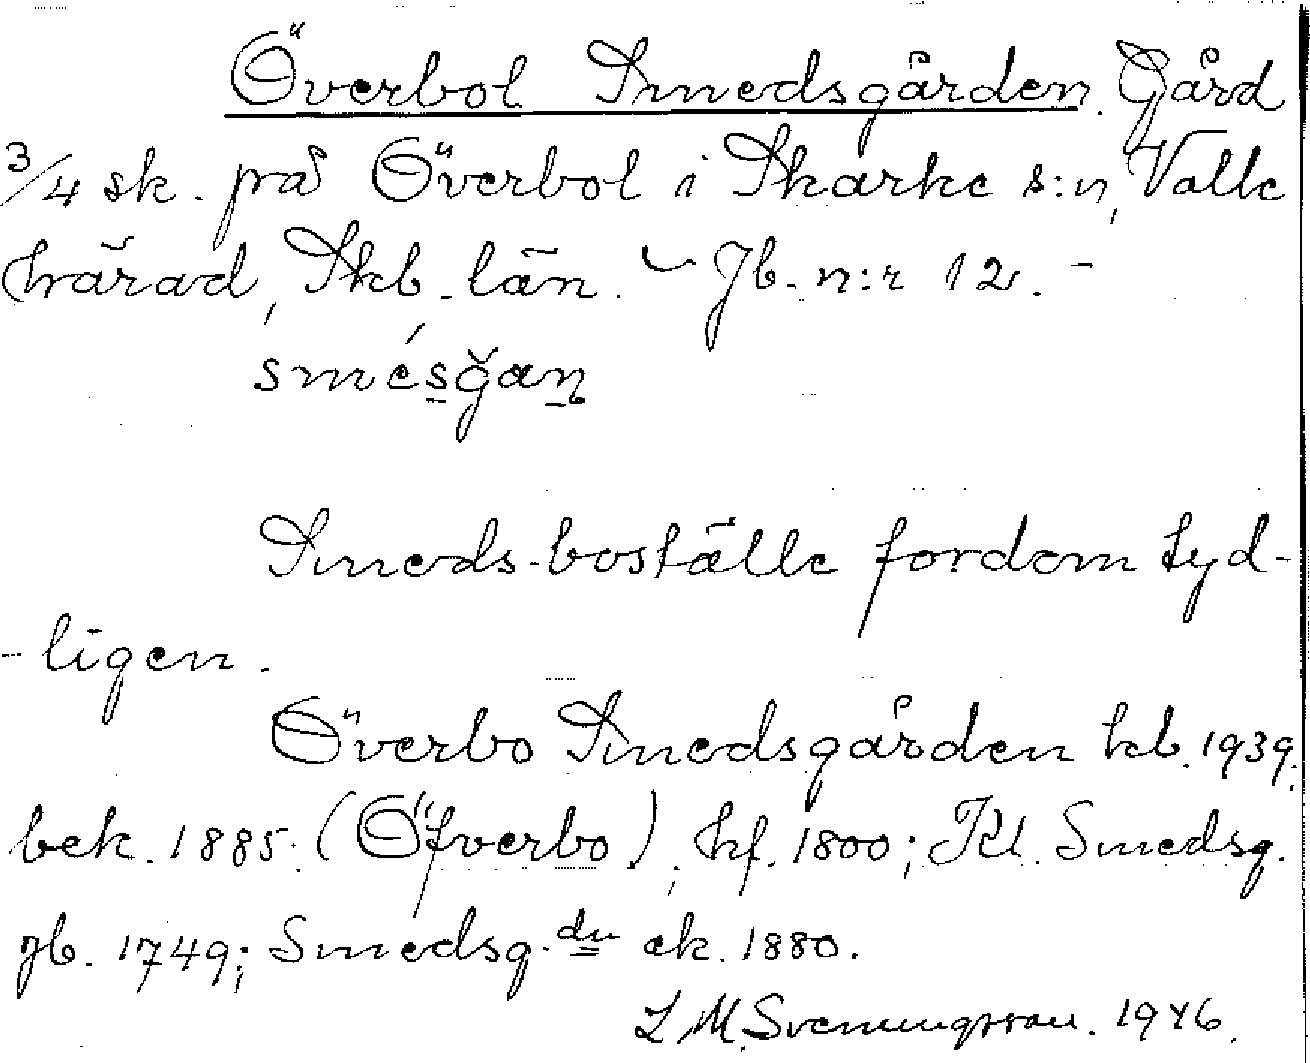 Överbol Smedsgården. Gård
3/4 sk. på Överbol i Skarke s:n, Valle
härad, Skb. län. – Jb. n:r 12. –
smésğan
Smeds-boställe fordom tyd-
-ligen.
Överbo Smedsgården kb. 1939.
bek. 1885. (Öfverbo), hf. 1800; Kl. Smedsg.
jb. 1749; Smedsg.dn ek. 1880.
L M. Svenungsson. 1946.